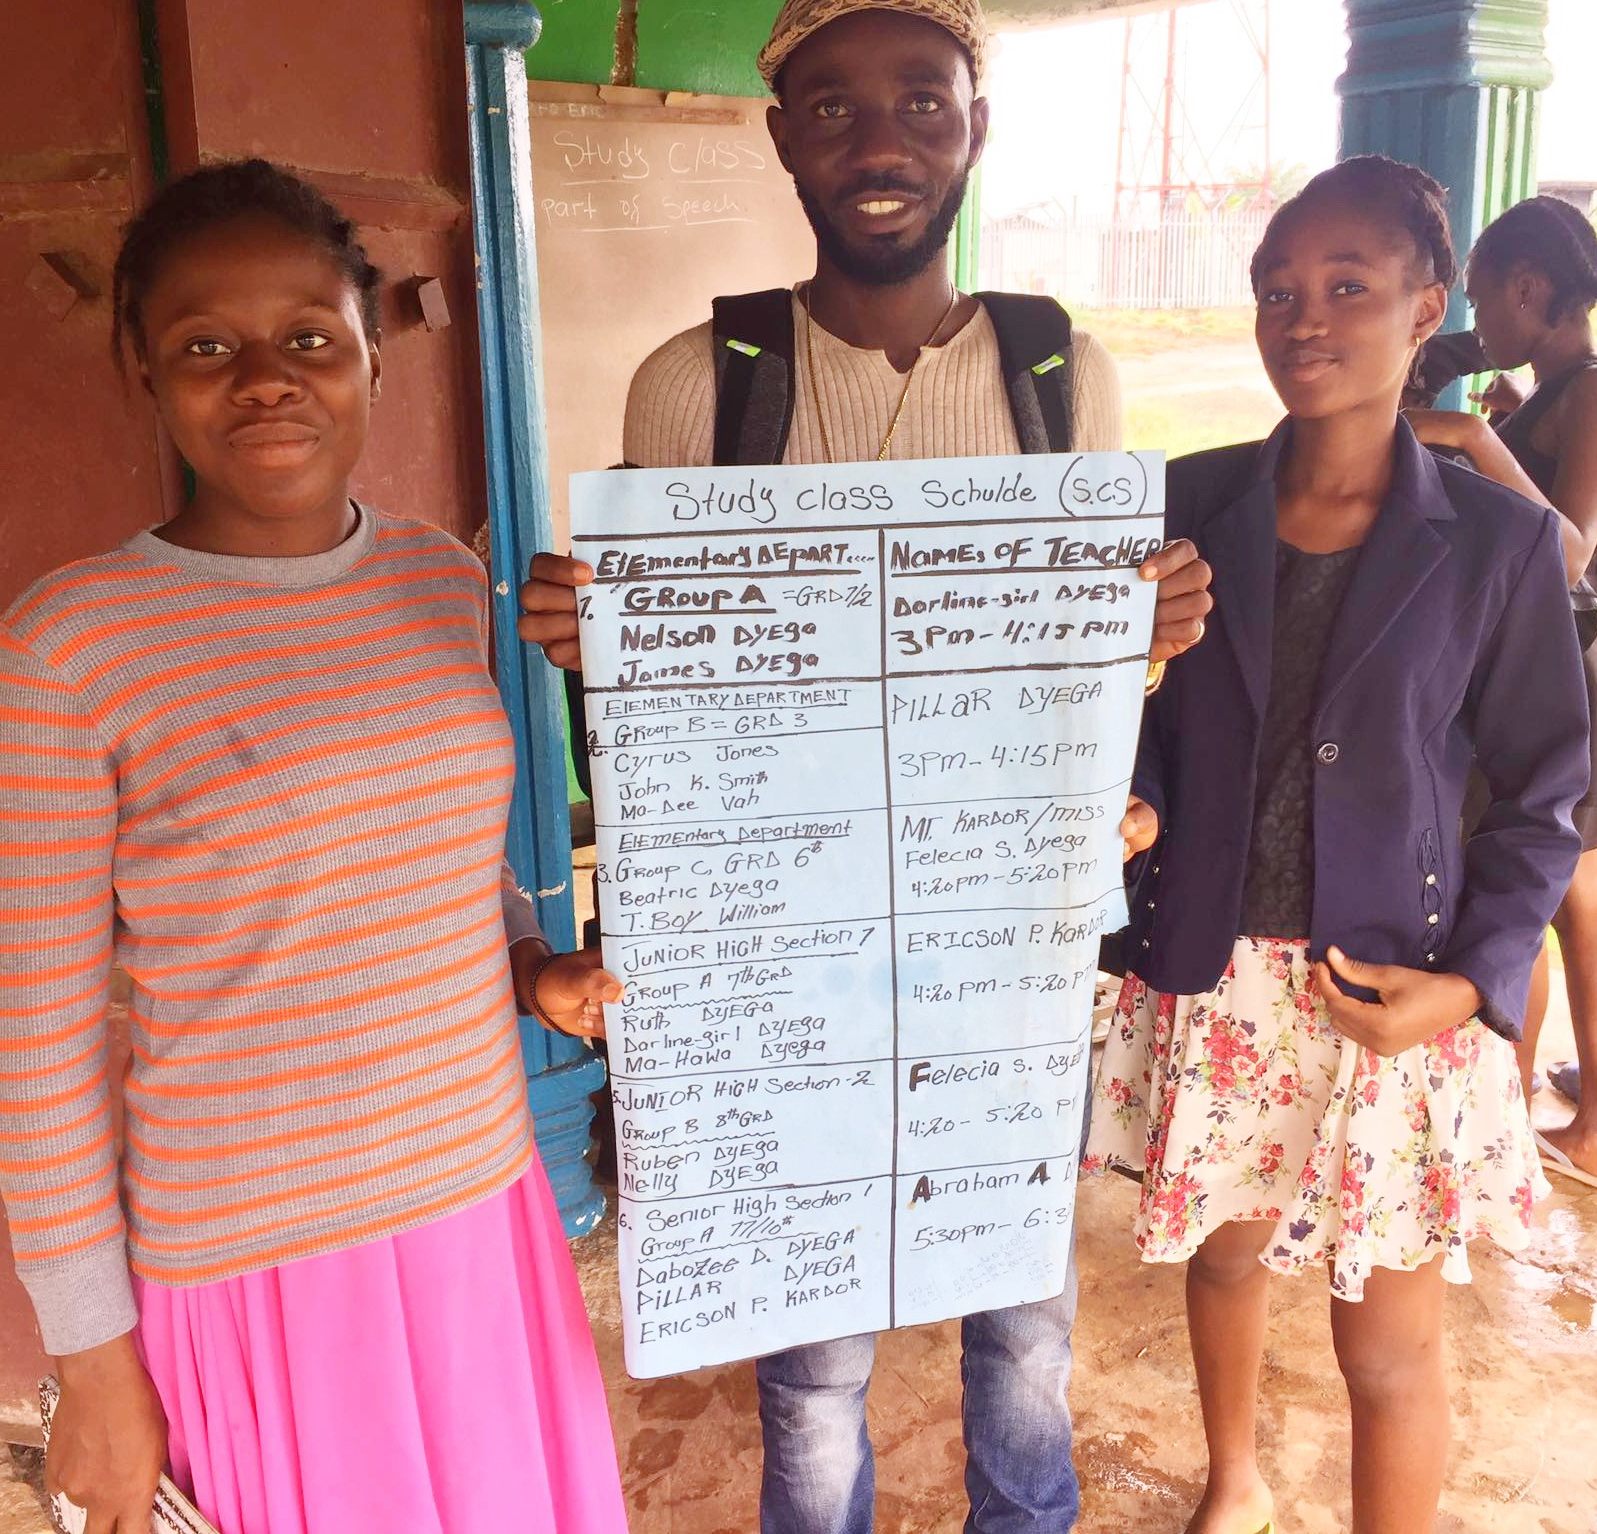 Study Class
part of Speech
Study class Schulde (S.C.S)
ElEmentary DEpART.....
NamEs OF TEACHER
1. "GRoup A =GRD 1/2
Nelson DYEga
James DYEga
Darline-girl DYEga
3Pm - 4:15 pm
ElEMENTARY DEPARTMENT
2. GRoup B = GRD 3
Cyrus Jones
John K. Smith
Ma-Dee Vah
PILLaR DYEGA
3PM - 4:15PM
ElEMEntary Department
3. Group C, GRD 6th
Beatric Dyega
T. BOY William
Mr. KARDOR/MISS
Felecia S. Dyega
4:20pm - 5:20pm
JUNIOR HIGH Section 1
Group A 7th GRD
Ruth DYEGa
Darline-girl Dyega
Ma-Hawa Dyega
ERICSON P. KARDOR
4:20 pm - 5:20 P
5. JUNIOR HIGH Section-2
Group B 8th GRD
Ruben DYEga
Nelly DYEga
Felecia S. DyE
4:20 - 5:20 P
6. Senior High Section 1
Group A 11/10th
Dabozee D. DYEGA
PiLLAR DYEGA
ERICSON P. KARDOR
Abraham A. D
5:30pm - 6:3